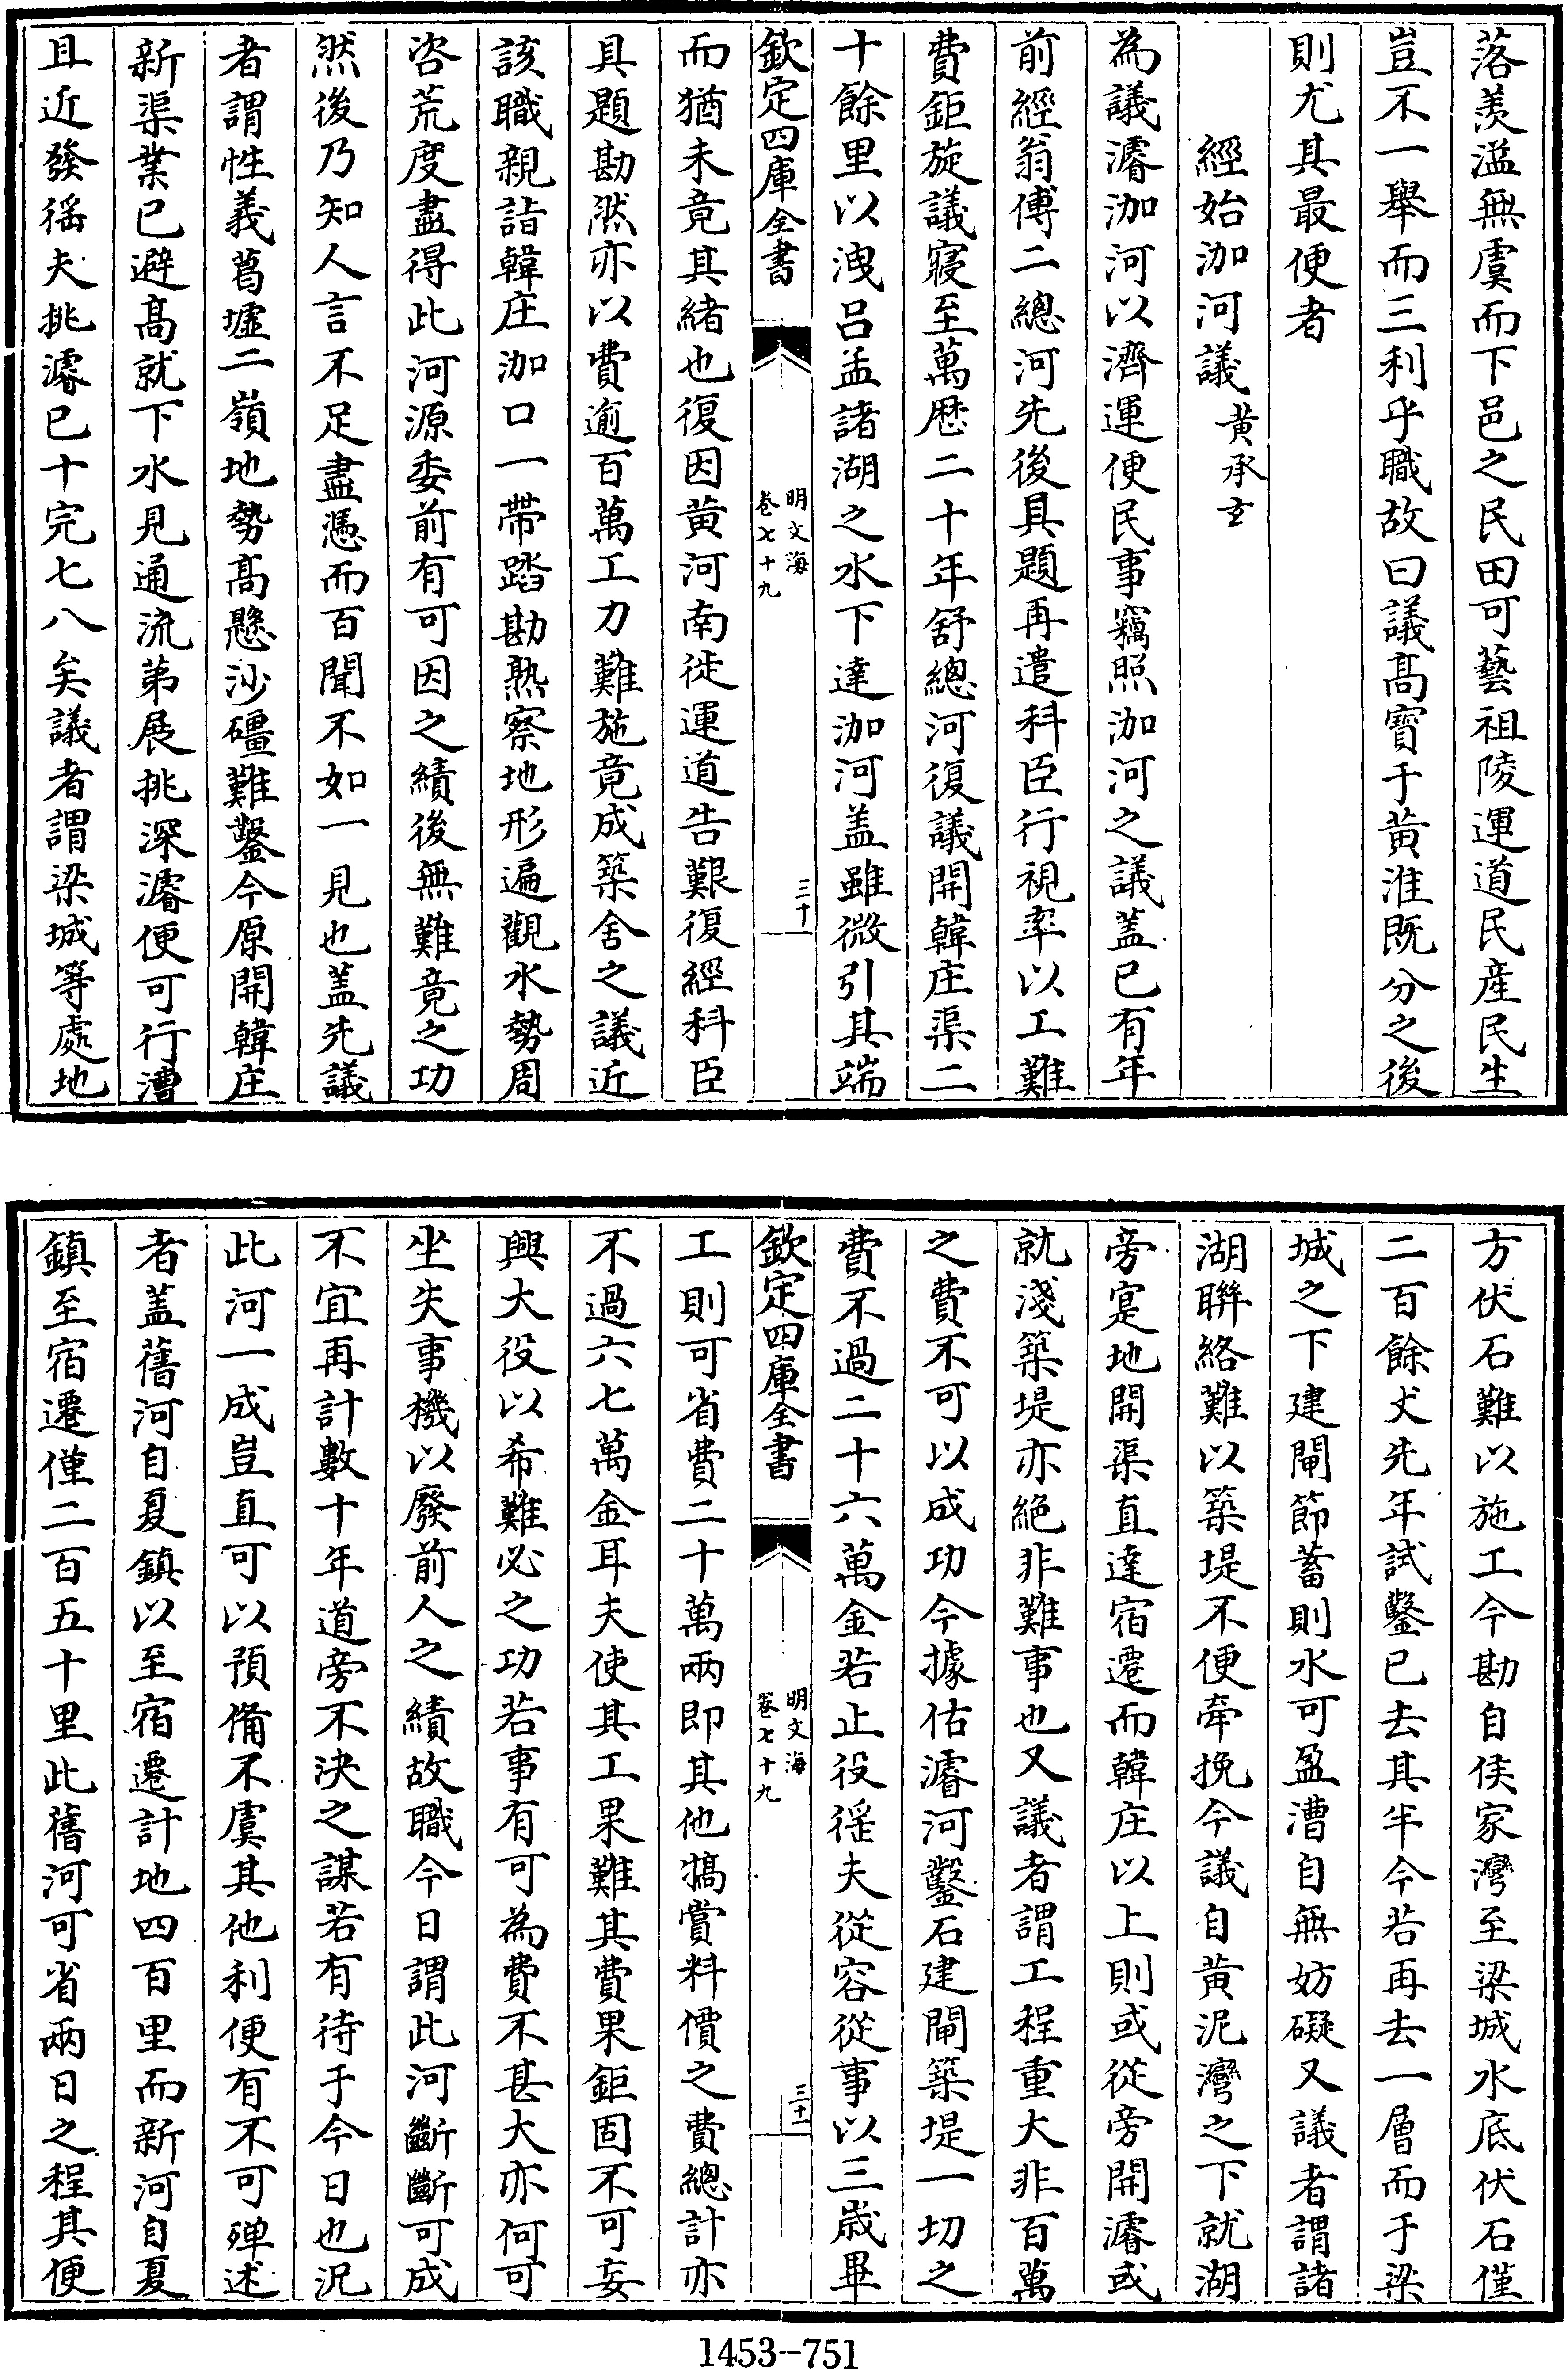 落羡溢無虞而下邑之民田可藝祖陵運道民產民生
豈不一舉而三利乎職故曰議髙寶于黄淮既分之後
則尤其最便者
經始泇河議 黄承玄
為議濬泇河以濟運便民事竊照泇河之議蓋已有年
前經翁傅二總河先後具題再遣科臣行視率以工難
費鉅旋議寢至萬厯二十年舒總河復議開韓庄渠二
十餘里以洩呂孟諸湖之水下達泇河蓋雖微引其端
欽定四庫全書
明文海
卷七十九
三十
而猶未竟其緒也復因黄河南徙運道告艱復經科臣
具題勘然亦以費逾百萬工力難施竟成築舍之議近
該職親詣韓庄泇口一帶踏勘熟察地形遍觀水勢周
咨荒度盡得此河源委前有可因之績後無難竟之功
然後乃知人言不足盡憑而百聞不如一見也蓋先議
者謂性義葛墟二嶺地勢髙懸沙礓難鑿今原開韓庄
新渠業已避髙就下水見通流第展挑深濬便可行漕
且近發徭夫挑濬已十完七八矣議者謂梁城等處地
方伏石難以施工今勘自侯家灣至梁城水底伏石僅
二百餘丈先年試鑿已去其半今若再去一層而于梁
城之下建閘節蓄則水可盈漕自無妨礙又議者謂諸
湖聨絡難以築堤不便牽挽今議自黄泥灣之下就湖
旁寔地開渠直達宿遷而韓庄以上則或從旁開濬或
就淺築堤亦絕非難事也又議者謂工程重大非百萬
之費不可以成功今據估濬河鑿石建閘築堤一切之
費不過二十六萬金若止役徭夫從容從事以三歲畢
欽定四庫全書
明文海
卷七十九
三十一
工則可省費二十萬兩即其他犒賞料價之費總計亦
不過六七萬金耳夫使其工果難其費果鉅固不可妄
興大役以希難必之功若事有可為費不甚大亦何可
坐失事機以廢前人之績故職今日謂此河斷斷可成
不宜再計數十年道旁不決之謀若有待于今日也況
此河一成豈直可以預備不虞其他利便有不可殫述
者蓋舊河自夏鎮以至宿遷計地四百里而新河自夏
鎮至宿遷僅二百五十里此舊河可省兩日之程其便
1453-751